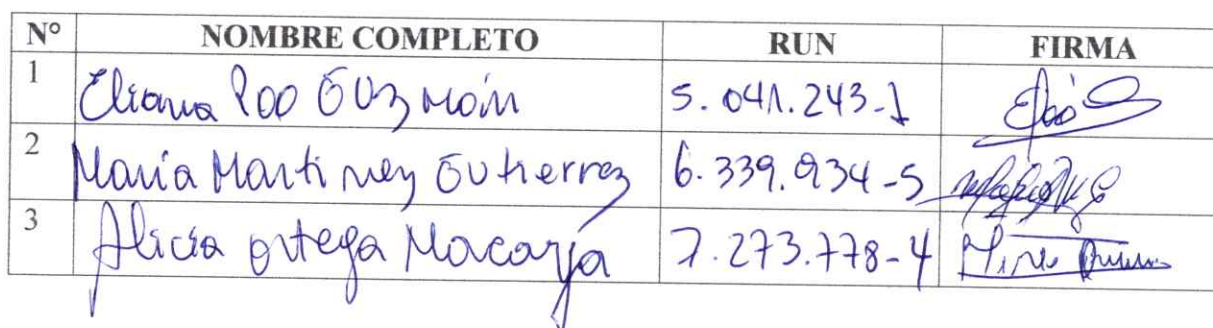 N° NOMBRE COMPLETO RUN FIRMA
1 Eliana Poo Guzmán 5.041.243-1
2 María Martinez Gutierrez 6.339.934-5
3 Alicia Ortega Macaya 7.273.778-4